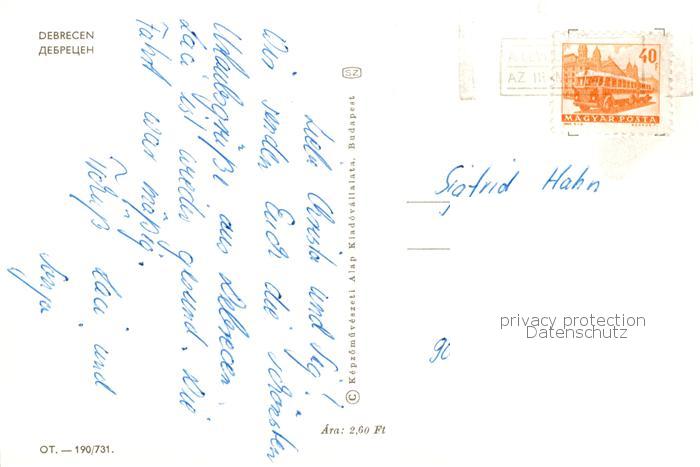 DEBRECEN
ДЕБРЕЦЕН
Liebe Christa und Sieg!
Wir senden Euch die schönsten
Urlaubsgrüße aus Debrecen.
Laci ist wieder gesund. Die
Fahrt war mäßig.
Tschüß Laci und
Sonja
OT. — 190/731.
Ára: 2,60 Ft
© Képzőművészeti Alap Kiadóvállalata, Budapest
SZ
40f
MAGYAR POSTA
AZ
Sigfrid Hahn
90
privacy protection
Datenschutz